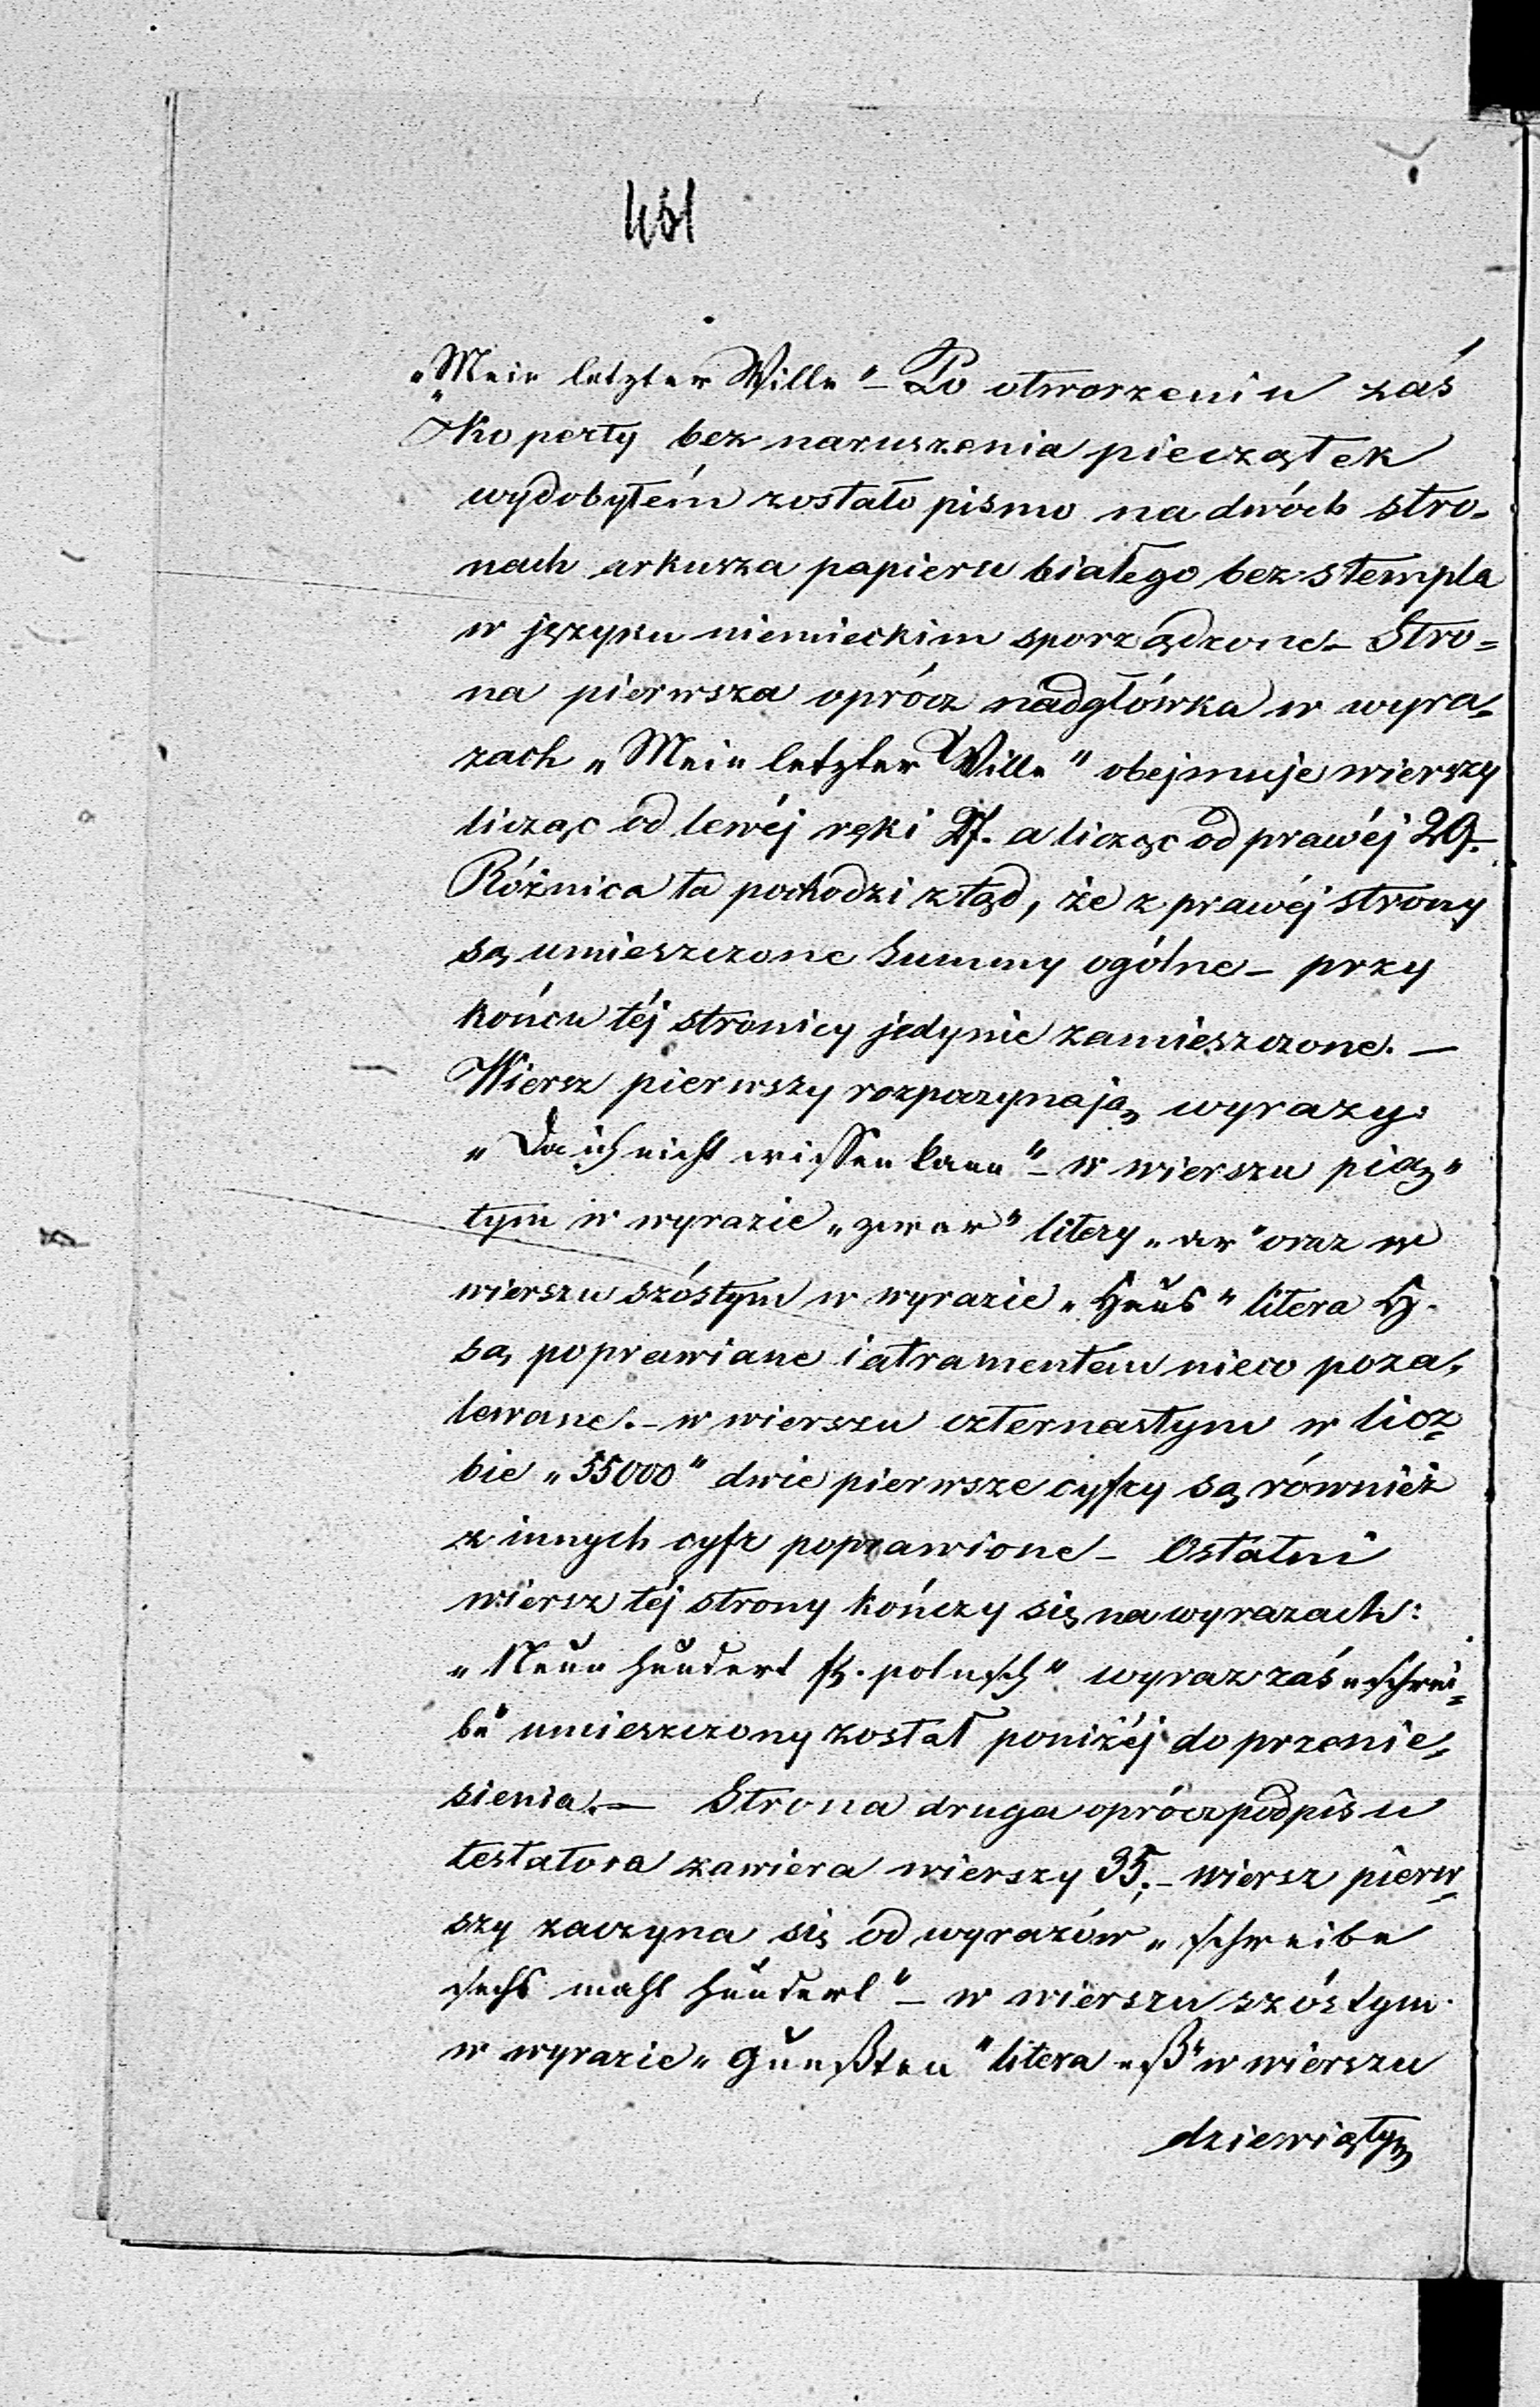 „Mein letzter Wille" – Po otworzeniu zaś
koperty bez naruszenia pieczątek
wydobytém zostało pismo na dwóch stro-
nach arkusza papieru białego bez stempla
w języku niemieckim sporządzone – Stro=
na pierwsza oprócz nadgłówka w wyra-
zach „Mein letzter Wille" obejmuje wierszy
licząc od lewéj ręki 27. a licząc od prawéj 29.–
Różnica ta pochodzi ztąd, że z prawéj strony
są umieszczone Summy ogólne – przy
końcu téj stronicy jedynie zamieszczone. –
Wiersz pierwszy rozpoczynają wyrazy:
„Da ich nicht wissen kann" – w wierszu pią-
tym w wyrazie „zwar" litery „ar" oraz w
wierszu szóstym w wyrazie „Haus" litera H.
są poprawiane i atramentem nieco poza-
lewane. – w wierszu czternastym w licz=
bie „55000" dwie pierwsze cyfry są również
z innych cyfr poprawione – Ostatni
wiersz téj strony kończy się na wyrazach:
„Neun hundert fl. polnisch" wyraz zaś „schrei=
be" umieszczony został poniżéj do przenie-
sienia. – Strona druga oprócz podpisu
testatora zawiera wierszy 35. – wiersz pierw=
szy zaczyna się od wyrazów „schreibe
sechs mahl hundert" – w wierszu szóstym
w wyrazie „gunßten" litera „ß" w wierszu
dziewiątym